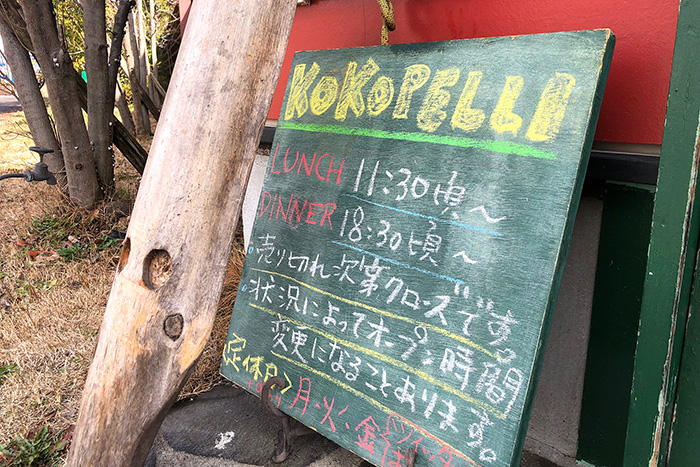 KOKOPELLI
LUNCH 11:30頃〜
DINNER 18:30頃〜
・売り切れ次第クローズです。
・状況によってオープン時間
変更になることあります。
〈定休日〉月・火・金